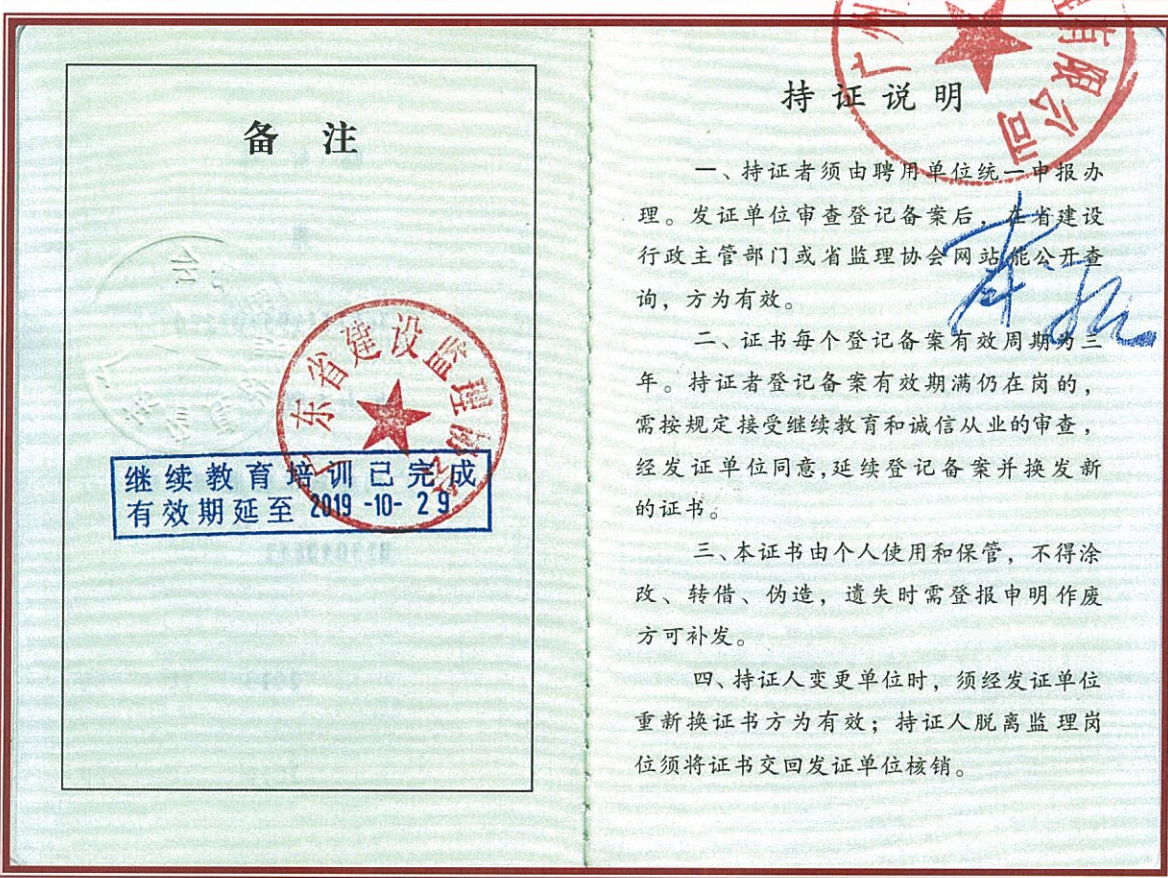 备 注
广东省建设监理协会
继续教育培训已完成
有效期延至 2019 -10- 29
广州
有限公司
持证说明
一、持证者须由聘用单位统一申报办
理。发证单位审查登记备案后，在省建设
行政主管部门或省监理协会网站能公开查
询，方为有效。
二、证书每个登记备案有效周期为三
年。持证者登记备案有效期满仍在岗的，
需按规定接受继续教育和诚信从业的审查，
经发证单位同意,延续登记备案并换发新
的证书。
三、本证书由个人使用和保管，不得涂
改、转借、伪造，遗失时需登报申明作废
方可补发。
四、持证人变更单位时，须经发证单位
重新换证书方为有效；持证人脱离监理岗
位须将证书交回发证单位核销。